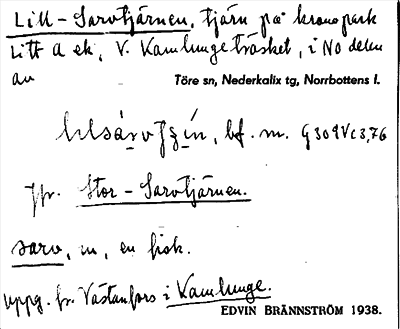 Lill-Sarvtjärnen, tjärn på kronopark
Litt A ek, V. Kamlungeträsket, i NO delen
av
Töre sn, Nederkalix tg, Norrbottens l.
bf. m. G309Vc3,76
Jfr. Stor-Sarvtjärnen.
sarv, m, en fisk.
Uppg. fr. Västanfors i Kamlunge.
EDVIN BRÄNNSTRÖM 1938.